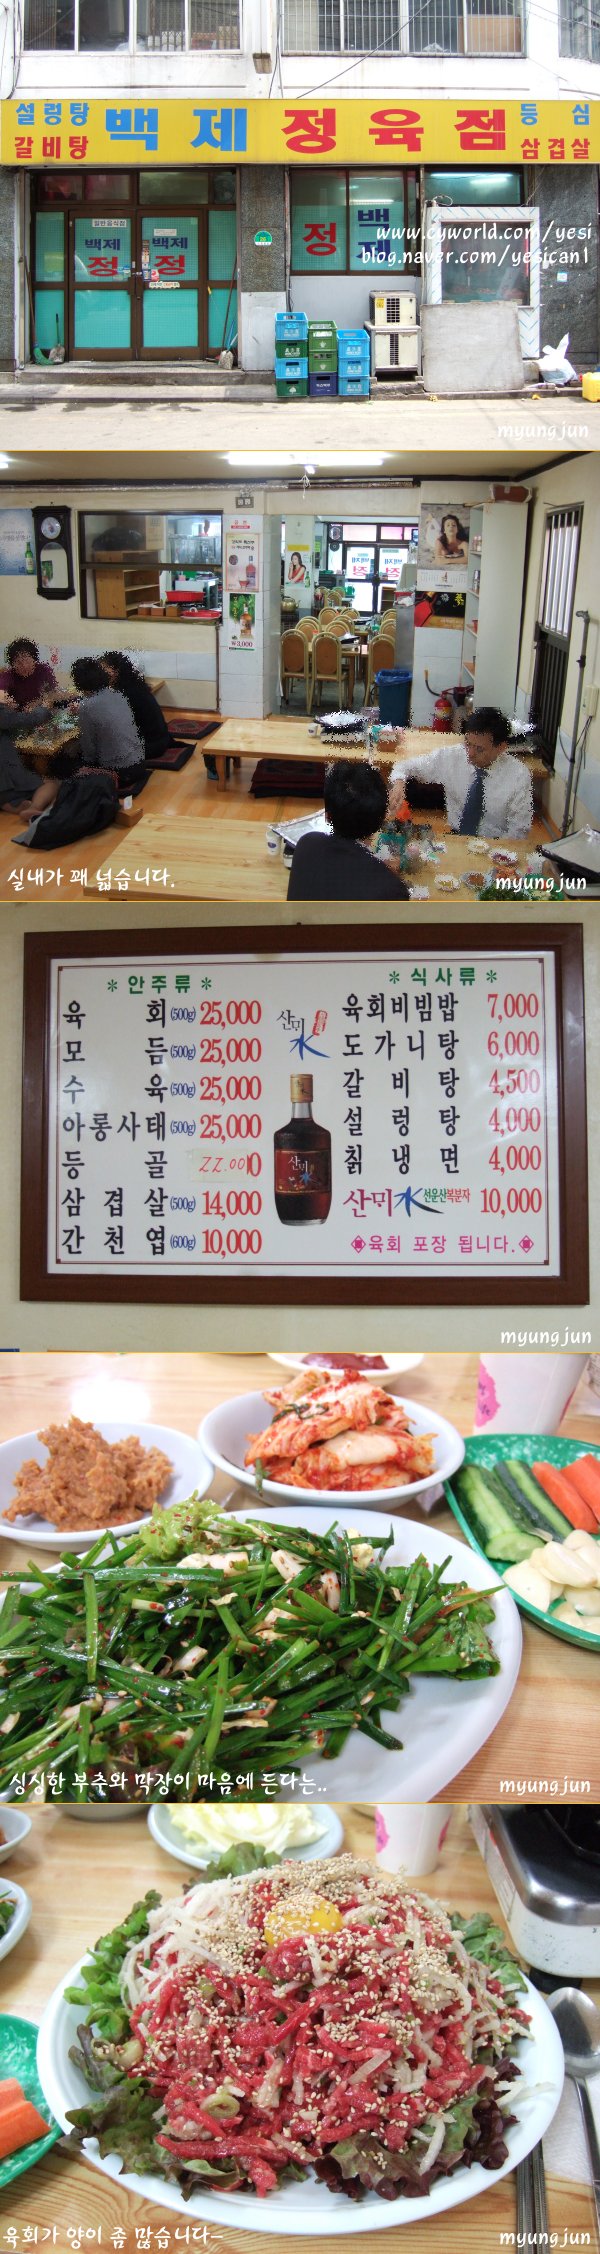 설렁탕 백제 정육점 등심
갈비탕 삼겹살
일반음식점
백제 백제
정 정
백제
정
www.cyworld.com/yesi
blog.naver.com/yesican1
myungjun
백제
정
₩3,000
실내가 꽤 넓습니다.
myungjun
* 안주류 *
육회(500g) 25,000
모듬(500g) 25,000
수육(500g) 25,000
아롱사태(500g) 25,000
등골 22.000
삼겹살(500g) 14,000
간천엽(600g) 10,000
산뫼水
산뫼水
* 식사류 *
육회비빔밥 7,000
도가니탕 6,000
갈비탕 4,500
설렁탕 4,000
칡냉면 4,000
산뫼水 선운산복분자 10,000
※육회 포장 됩니다.※
myungjun
싱싱한 부추와 막장이 마음에 든다는..
myungjun
육회가 양이 좀 많습니다-
myungjun